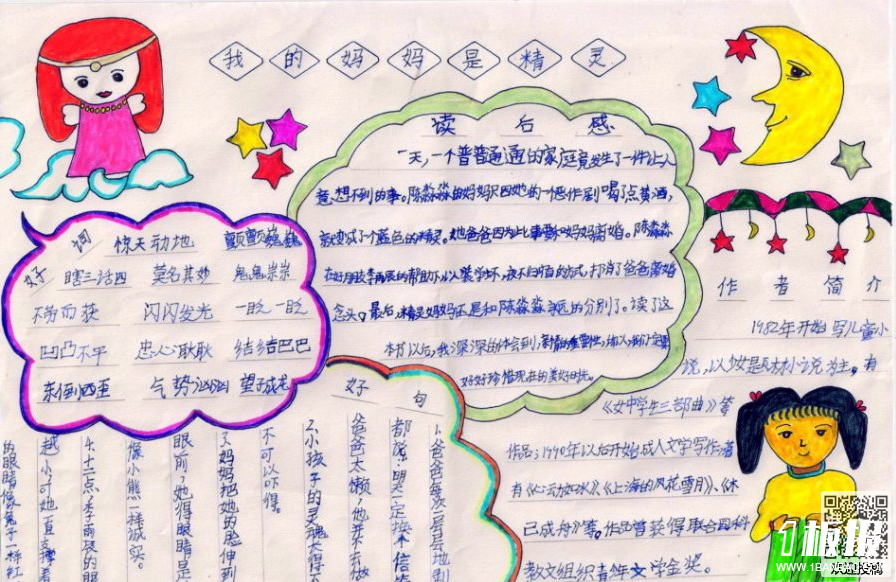 我的妈妈是精灵
读后感
一天,一个普普通通的家庭竟发生了一件让人
意想不到的事。陈淼淼的妈妈只因她的一个恶作剧喝了点黄酒,
就变成了一个蓝色的精灵。她爸爸因为此事要和妈妈离婚。陈淼淼
在好朋友李雨辰的帮助下,以装学坏、夜不归宿的方式,打消了爸爸离婚
念头,最后,精灵妈妈还是和陈淼淼永远的分别了。读了这
本书以后,我深深的体会到,
好好珍惜现在的美好时光。
好词
惊天动地 颤颤巍巍
瞎三话四 莫名其妙 鬼鬼祟祟
不劳而获 闪闪发光 一眨一眨
凹凸不平 忠心耿耿 结结巴巴
东倒西歪 气势汹汹 望子成龙
作者简介
1982年开始写儿童小
说,以少女题材小说为主,有
《女中学生三部曲》等
作品;1990年以后开始成人文学写作,著
有《心动如水》、《上海的风花雪月》、《木
已成舟》等。作品曾获得联合国科
教文组织青年文学金奖。
好句
1.爸爸每次层层地
都说:明天一定换个信箱
爸爸太懒,他乘去做
2.小孩子的灵魂大得
不可以吓得。
3.妈妈把她的脸伸到
眼前,她得眼睛是
像小熊一样诚实。
4.十二点,李雨辰的眼
越小,可她一直支撑着
的眼睛像兔子一样红
1板报
WWW.1BANBAO.COM
欢迎投稿